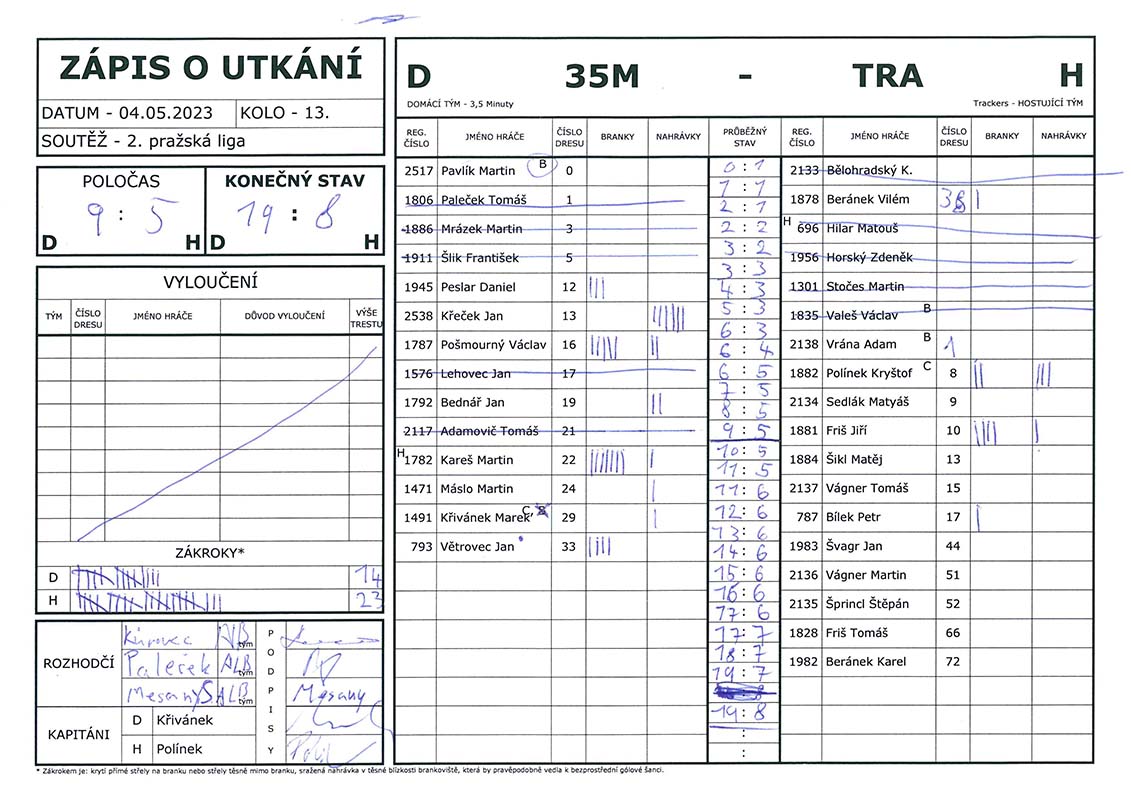 ZÁPIS O UTKÁNÍ
DATUM - 04.05.2023 KOLO - 13.
SOUTĚŽ - 2. pražská liga
POLOČAS KONEČNÝ STAV
9 : 5 19 : 8
D H D H
VYLOUČENÍ
TÝM ČÍSLO DRESU JMÉNO HRÁČE DŮVOD VYLOUČENÍ VÝŠE TRESTU
ZÁKROKY*
D 14
H 23
ROZHODČÍ
Kůrovec ALB tým
Paleček ALB tým
Mesany SALB tým
PODPISY
Mesany
KAPITÁNI
D Křivánek
H Polínek
D 35M - TRA H
DOMÁCÍ TÝM - 3,5 Minuty Trackers - HOSTUJÍCÍ TÝM
REG. ČÍSLO JMÉNO HRÁČE ČÍSLO DRESU BRANKY NAHRÁVKY PRŮBĚŽNÝ STAV REG. ČÍSLO JMÉNO HRÁČE ČÍSLO DRESU BRANKY NAHRÁVKY
2517 Pavlík Martin B 0
1806 Paleček Tomáš 1
1886 Mrázek Martin 3
1911 Šlik František 5
1945 Peslar Daniel 12
2538 Křeček Jan 13
1787 Pošmourný Václav 16
1576 Lehovec Jan 17
1792 Bednář Jan 19
2117 Adamovič Tomáš 21
H 1782 Kareš Martin 22
1471 Máslo Martin 24
1491 Křivánek Marek C, B 29
793 Větrovec Jan 33
0 : 1
1 : 1
2 : 1
2 : 2
3 : 2
3 : 3
4 : 3
5 : 3
6 : 3
6 : 4
6 : 5
7 : 5
8 : 5
9 : 5
10 : 5
11 : 5
11 : 6
12 : 6
13 : 6
14 : 6
15 : 6
16 : 6
17 : 6
17 : 7
18 : 7
19 : 7
19 : 8
:
:
2133 Bělohradský K.
1878 Beránek Vilém
H 696 Hilar Matouš
1956 Horský Zdeněk
1301 Stočes Martin
1835 Valeš Václav B
2138 Vrána Adam B 1
1882 Polínek Kryštof C 8
2134 Sedlák Matyáš 9
1881 Friš Jiří 10
1884 Šikl Matěj 13
2137 Vágner Tomáš 15
787 Bílek Petr 17
1983 Švagr Jan 44
2136 Vágner Martin 51
2135 Šprincl Štěpán 52
1828 Friš Tomáš 66
1982 Beránek Karel 72
* Zákrokem je: krytí přímé střely na branku nebo střely těsně mimo branku, sražená nahrávka v těsné blízkosti brankoviště, která by pravěpodobně vedla k bezprostřední gólové šanci.